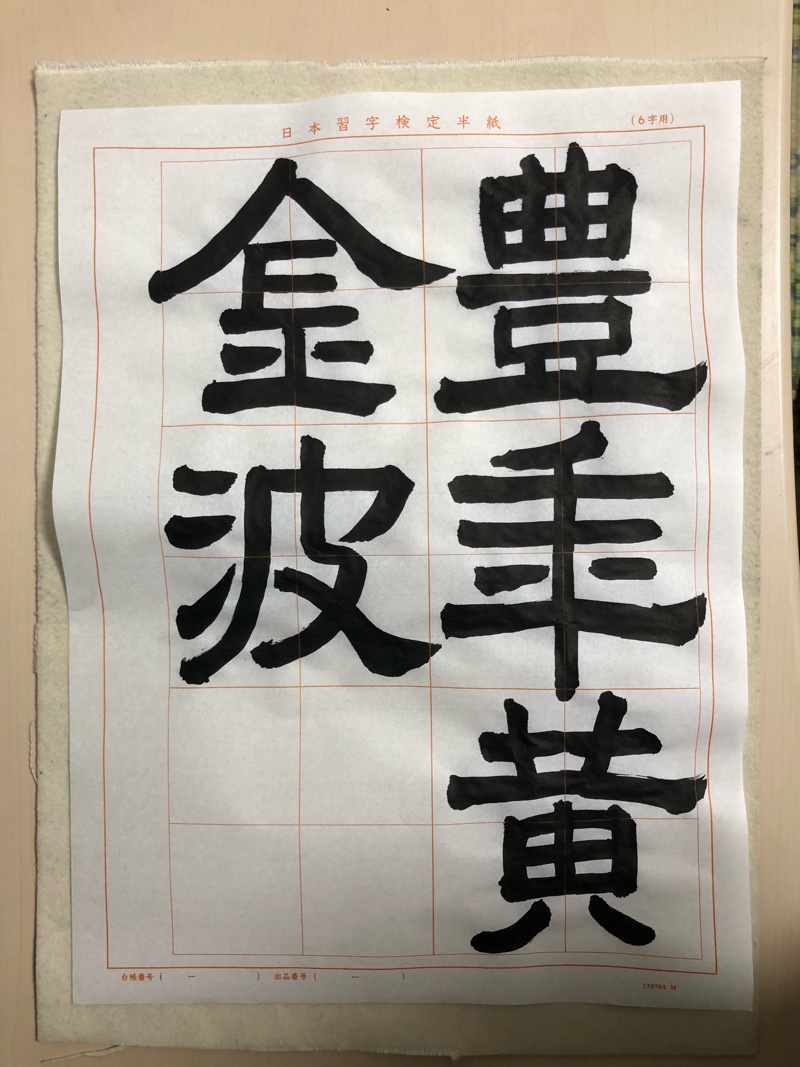 日本習字検定半紙
(6字用)
豊年黄
金波
台帳番号( ー ) 出品番号( ー )